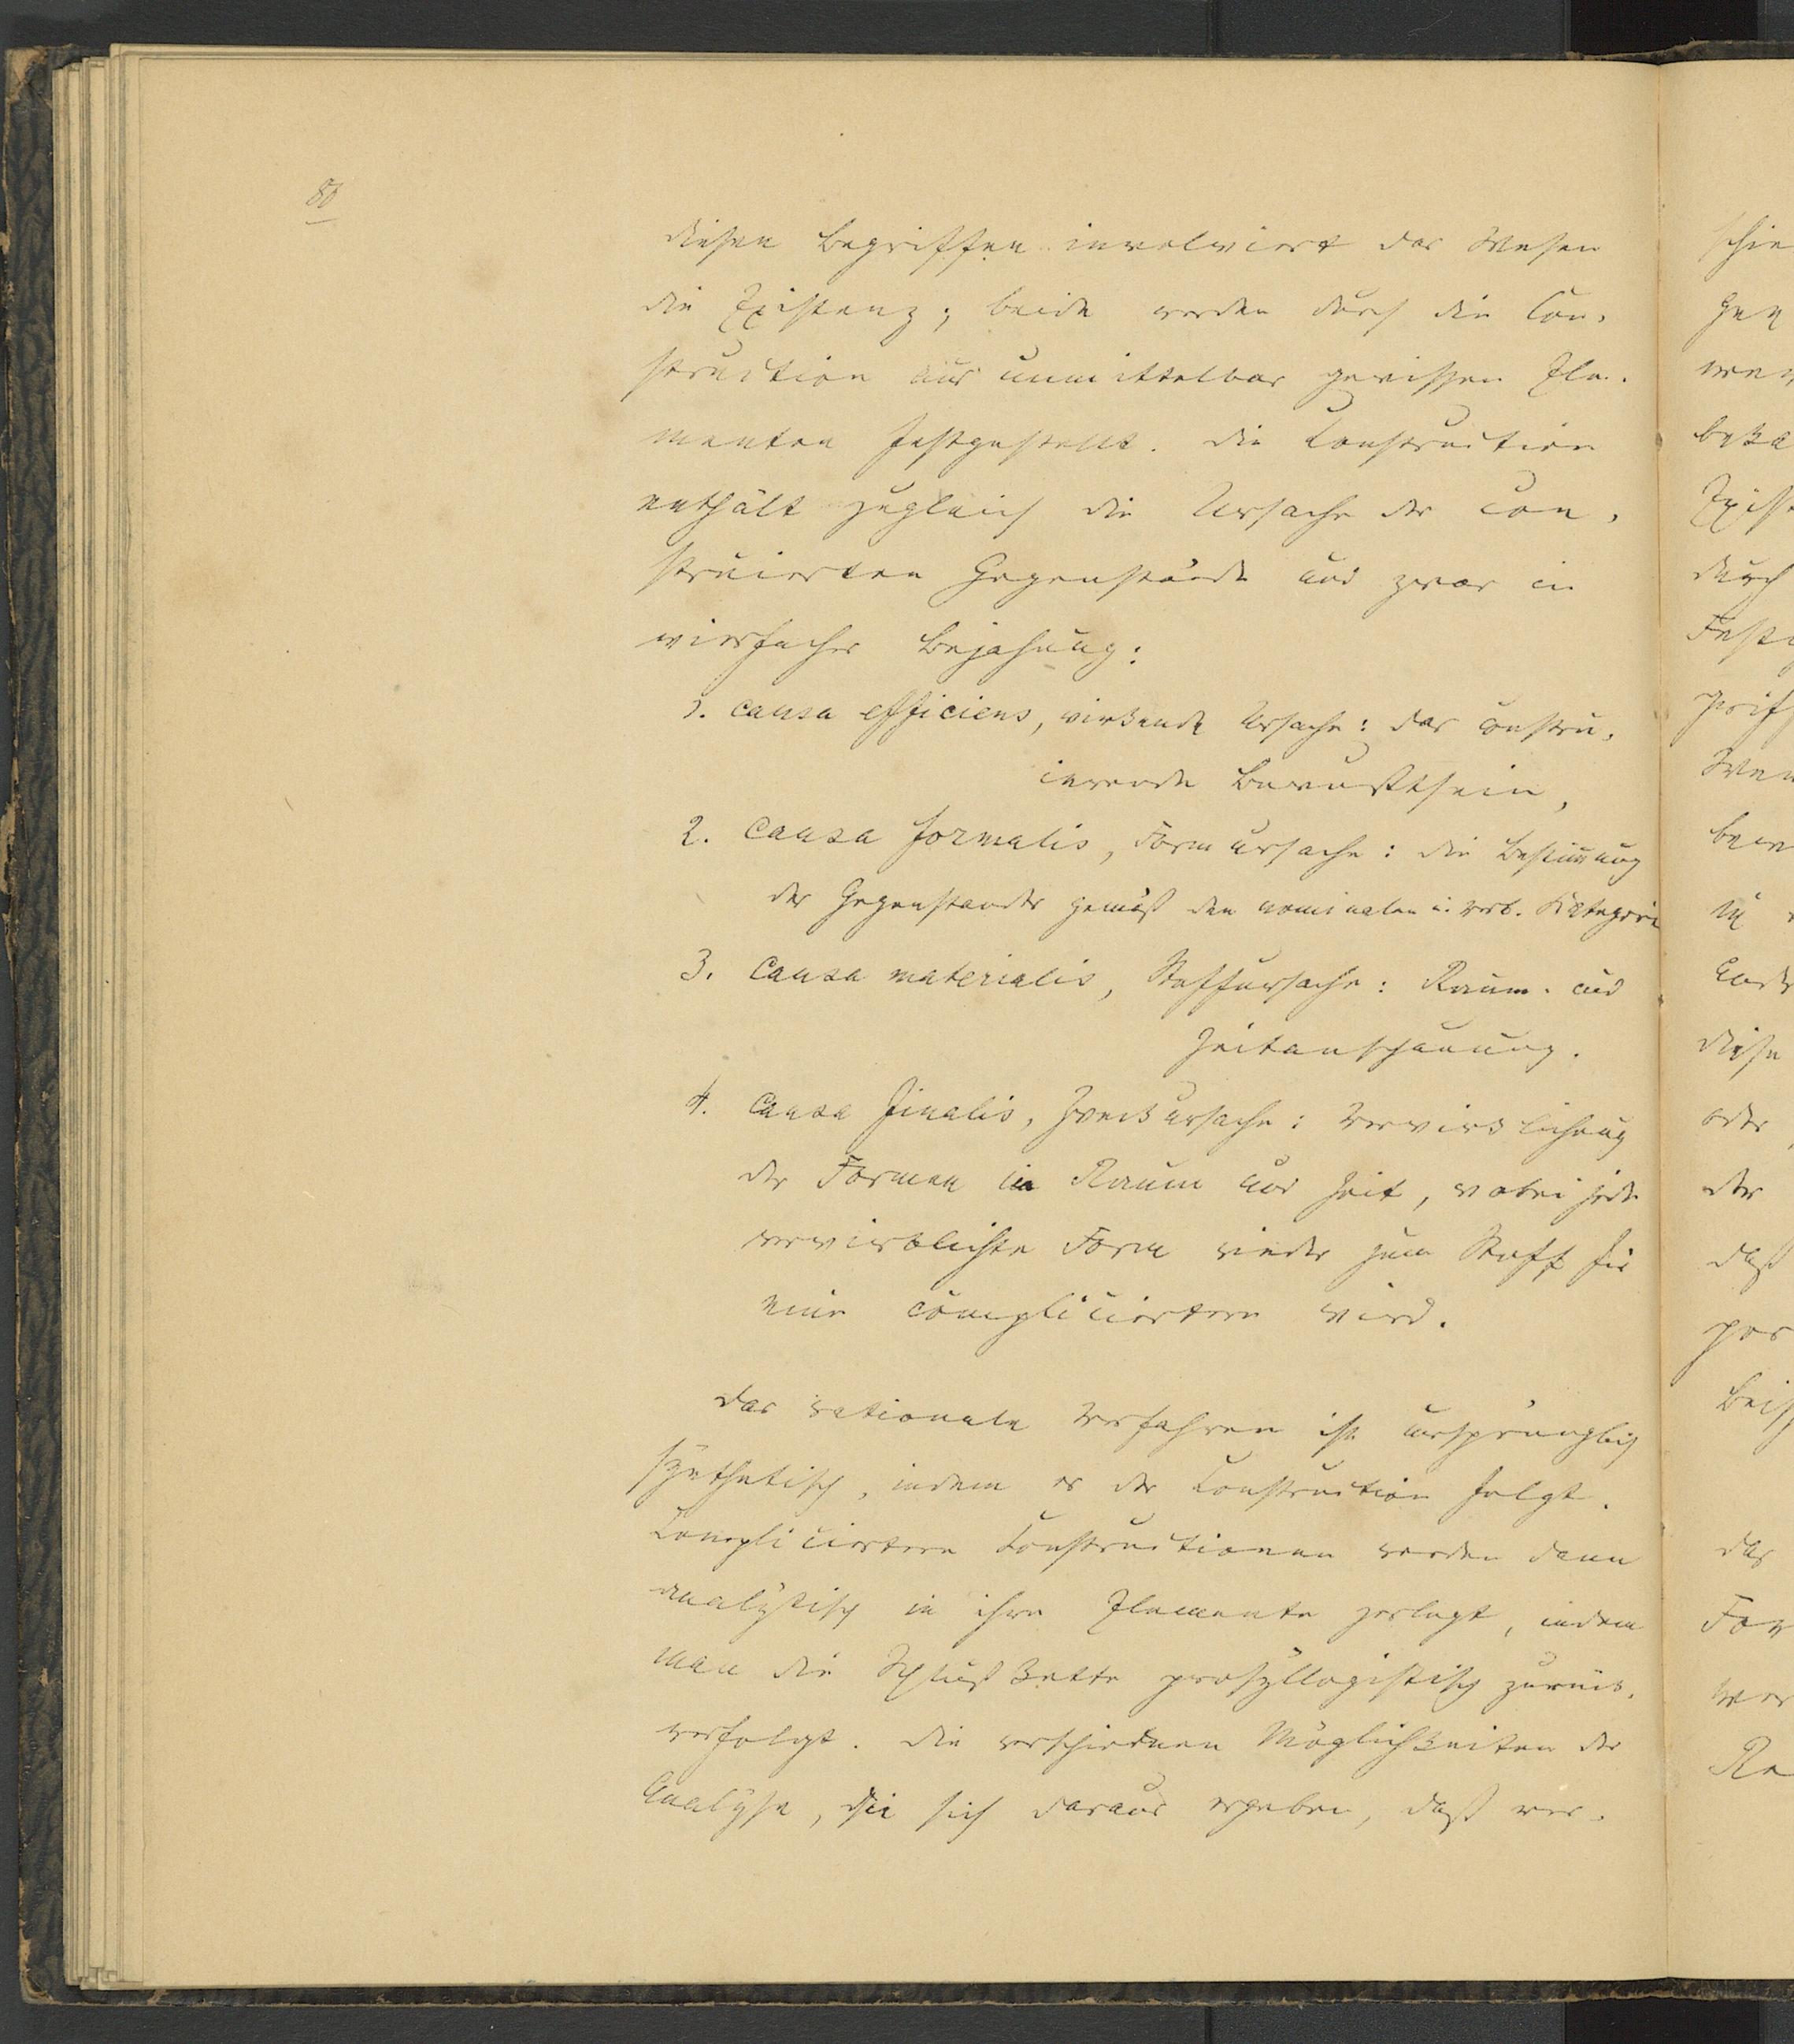 80
diesen Begriffen involviert das Wesen
die Existenz; beide werden durch die Con-
struction aus unmittelbar gewissen Ele-
menten festgestellt. Die Construction
enthält zugleich die Ursache der con-
struierten Gegenstände und zwar in
vierfacher Bejahung:
1. causa efficiens, wirkende Ursache: das constru-
ierende Bewusstsein,
2. causa formalis, Formursache: die Bestim̄ung
des Gegenstandes gemäß den nominalen u. verb. Kategorien
3. causa materialis, Stoffursache: Raum- und
Zeitanschauung.
4. causa finalis, Zweckursache: Verwirklichung
der Formen in Raum und Zeit, wobei jede
verwirklichte Form wieder zum Stoff für
eine compliciertere wird.
Das rationale Verfahren ist ursprünglich
synthetisch, indem es der Construction folgt.
Compliciertere Constructionen werden dann
analytisch in ihre Elemente zerlegt, indem
man die Schlußkette prosyllogistisch zurück-
verfolgt. Die verschiednen Möglichkeiten der
Analyse, die sich daraus ergeben, daß ver-